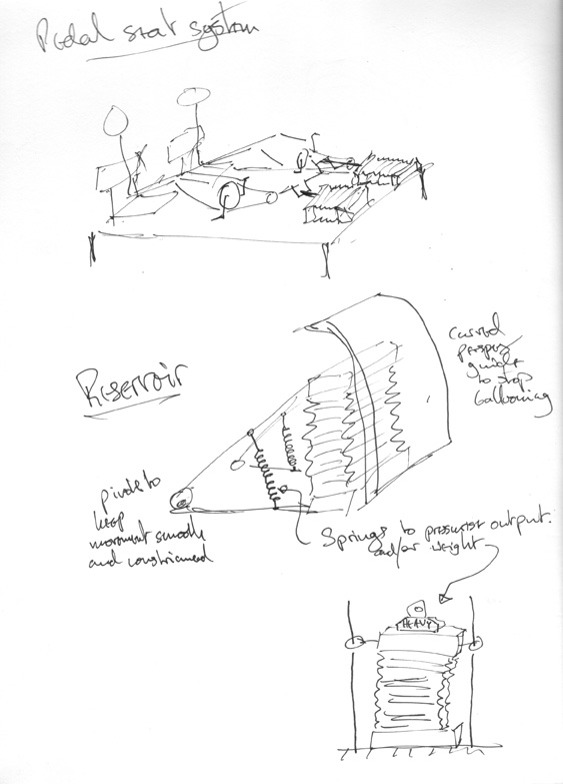 Pedal seat system
Reservoir
curved
perspex
guide
to stop
ballooning
pivots to
keep
movement smooth
and constrained
Springs to pressurise output.
and/or weight
HEAVY